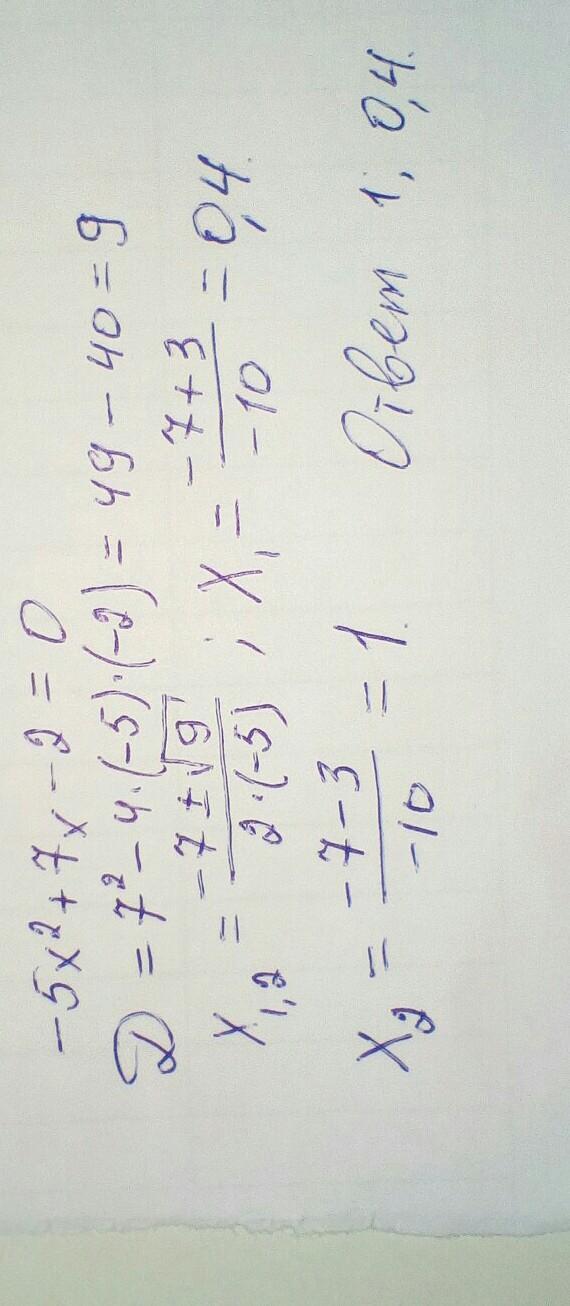 -5x²+7x-2=0
D=7²-4·(-5)·(-2)=49-40=9
x₁,₂ = (-7±√9)/(2·(-5)) ; x₁ = (-7+3)/(-10) = 0,4.
x₂ = (-7-3)/(-10) = 1. Ответ 1; 0,4.